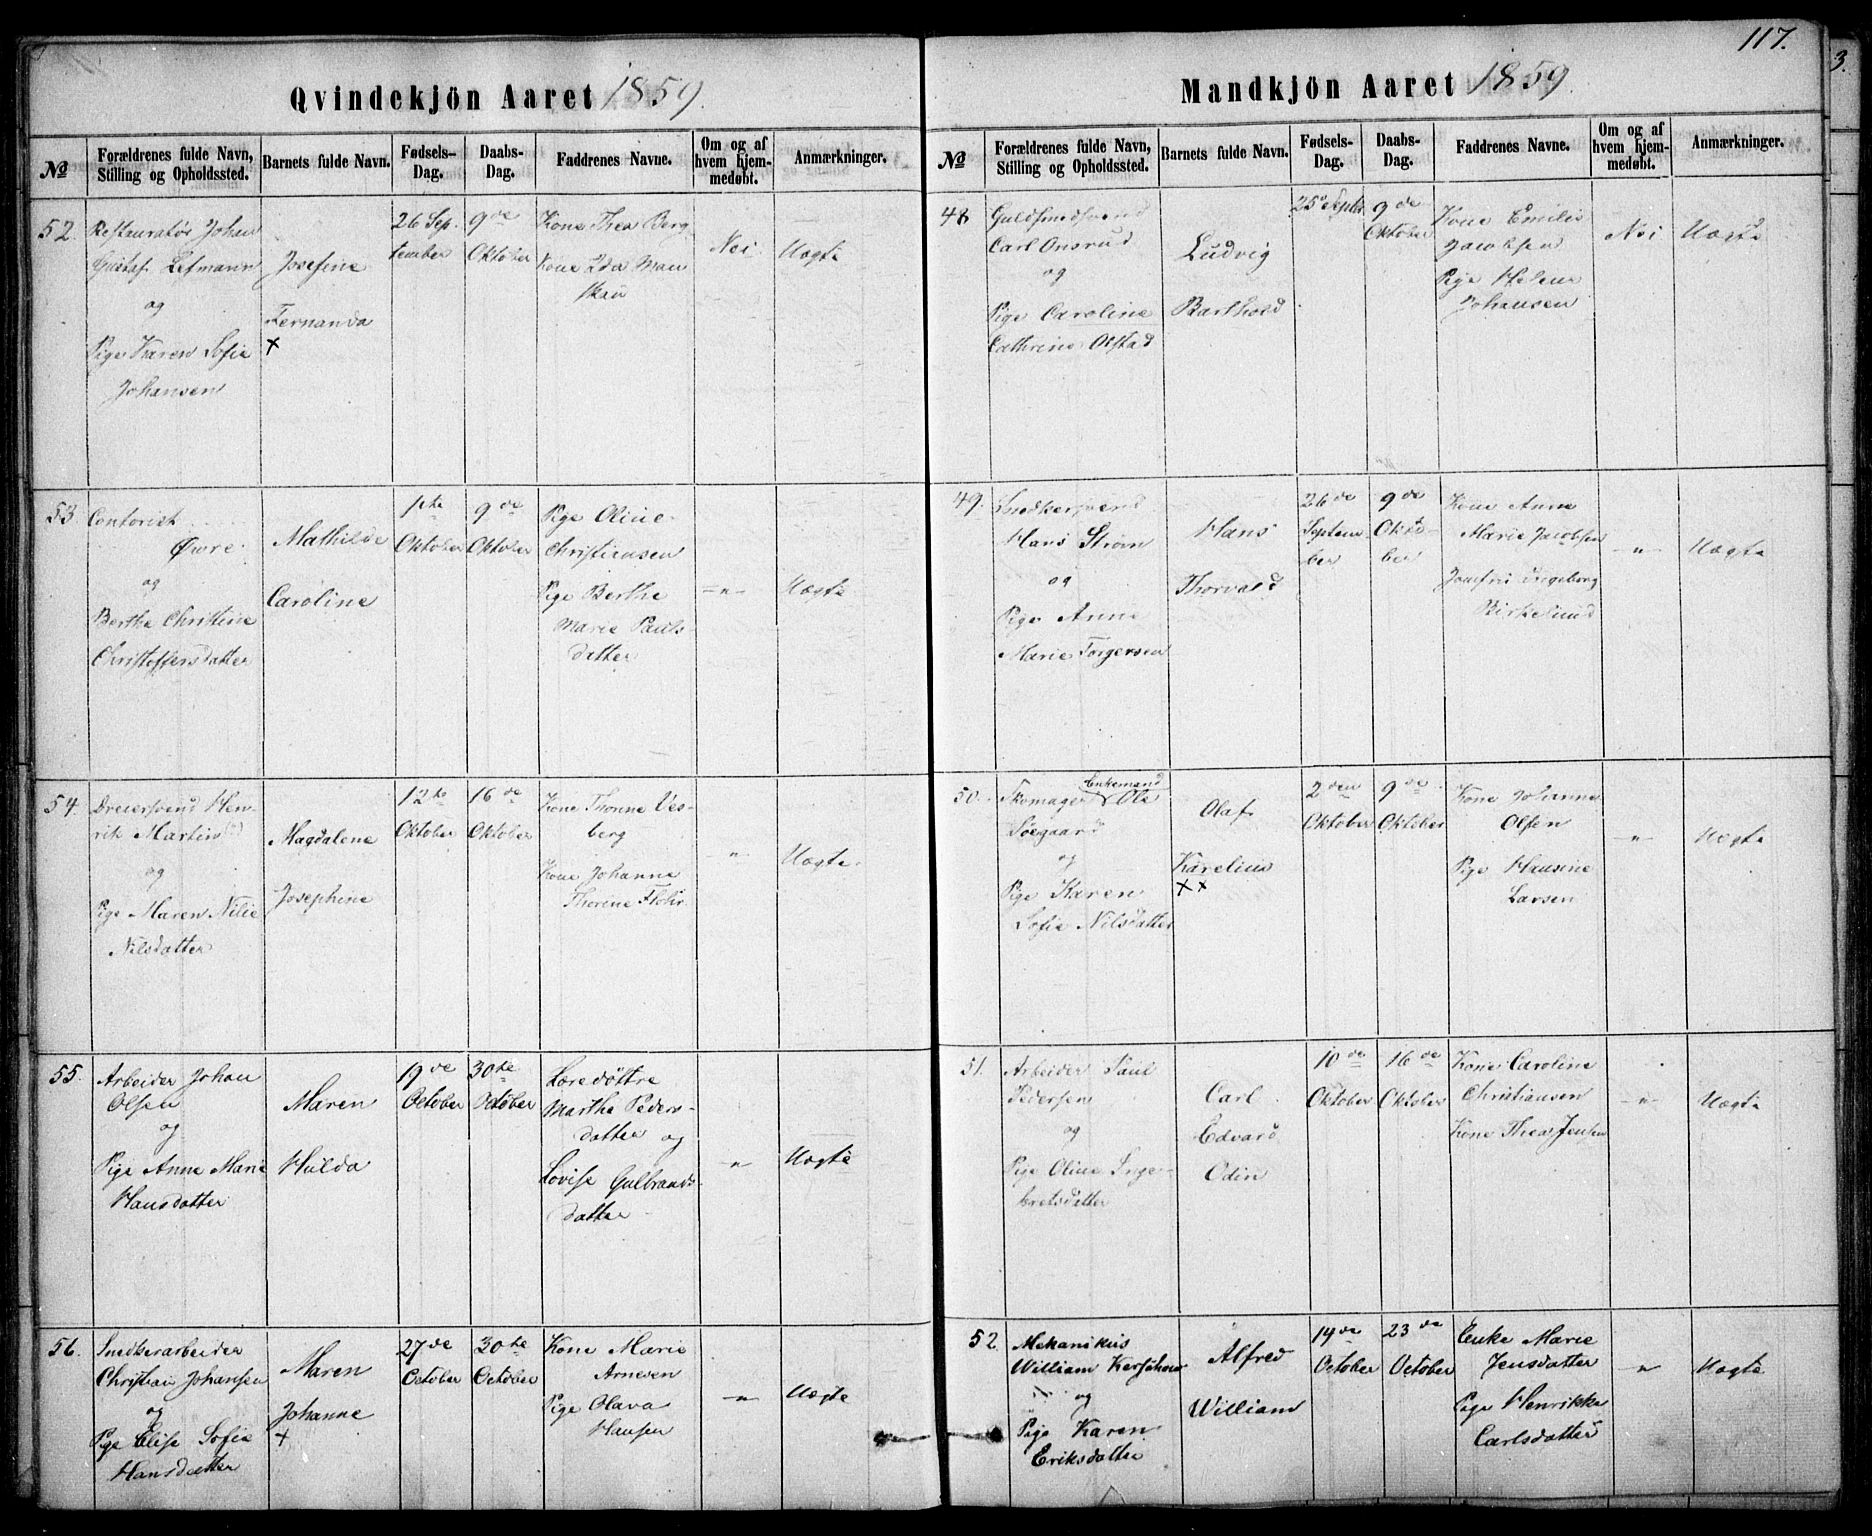 117.
3.
Qvindekjön Aaret 1859.
№
Forældrenes fulde Navn, Stilling og Opholdssted.
Barnets fulde Navn.
Fødsels-Dag.
Daabs-Dag.
Faddrenes Navne.
Om og af hvem hjem-medøbt.
Anmærkninger.
52.
Restauratør Johan
Gustaf Lefmann
og
Pige Karen Sofie
Johansen
Josefine
Fernanda
×
26 Sep-
tember
9de
Oktober
Kone Thea Berg
Kone Ida Man
skau
Nei
Uægte
53.
Contorist
Øvre
og
Berthe Christine
Christoffersdatter
Mathilde
Caroline
1ste
Oktober
9de
Oktober
Pige Oline
Christiansen
Pige Berthe
Marie Pauls-
datter
-"-
Uægte
54.
Dreiersvend Hen-
rik Martin
og
Pige Maren Nilie
Nilsdatter
Magdalene
Josephine
12te
Oktober
16de
Oktober
Kone Thonne Ves-
berg
Kone Johanne
Thorine Flohr
-"-
Uægte.
55.
Arbeider Johan
Olsen
og
Pige Anne Marie
Hansdatter
Maren
Hulda
19de
October
30te
October
Læredøttre
Marthe Peders-
datter og
Lovise Gulbrands-
datter
-"-
Uægte
56.
Snedkerarbeider
Christian Johansen
og
Pige Elise Sofie
Hansdatter
Maren
Johanne
+
27de
October
30te
October
Kone Marie
Arnesen
Pige Olava
Hansen
-"-
Uægte
Mandkjön Aaret 1859.
№
Forældrenes fulde Navn, Stilling og Opholdssted.
Barnets fulde Navn.
Fødsels-Dag.
Daabs-Dag.
Faddrenes Navne.
Om og af hvem hjem-medøbt.
Anmærkninger.
48
Guldsmedsvend
Carl Onsrud
og
Pige Caroline
Cathrine Olstad
Ludvig
Barthold
25de Septbr
9de
Oktober
Kone Emilie
Jacobsen
Pige Helene
Johansen
Nei
Uægte
49.
Snedkersvend
Hans Strøm
og
Pige Anne
Marie Torgersen
Hans
Thorvald
26de
Septem
ber
9de
Okto-
ber
Kone Anne
Marie Jacobsen
Jomfru Ingeborg
Birkelund
-"-
Uægte
50.
Enkemand
Skomager Ole
Søegaard
og
Pige Karen
Sofie Nilsdatter
Olaf
Karelius
××
2den
Oktober
9de
Oktober
Kone Johanne
Olsen
Pige Hansine
Larsen
-"-
Uægte
51.
Arbeider Paul
Pedersen
og
Pige Oline Inge-
bretsdatter
Carl
Edvard
Odin
10de
Oktober
16de
Oktober
Kone Caroline
Christiansen
Kone Thea Jensen
-"-
Uægte
52.
Mekanikus
William
og
Pige Karen
Eriksdatter
Alfred
William
14de
October
23de
October
Enke Marie
Jensdatter
Pige Henrikke
Carlsdatter
-"-
Uægte